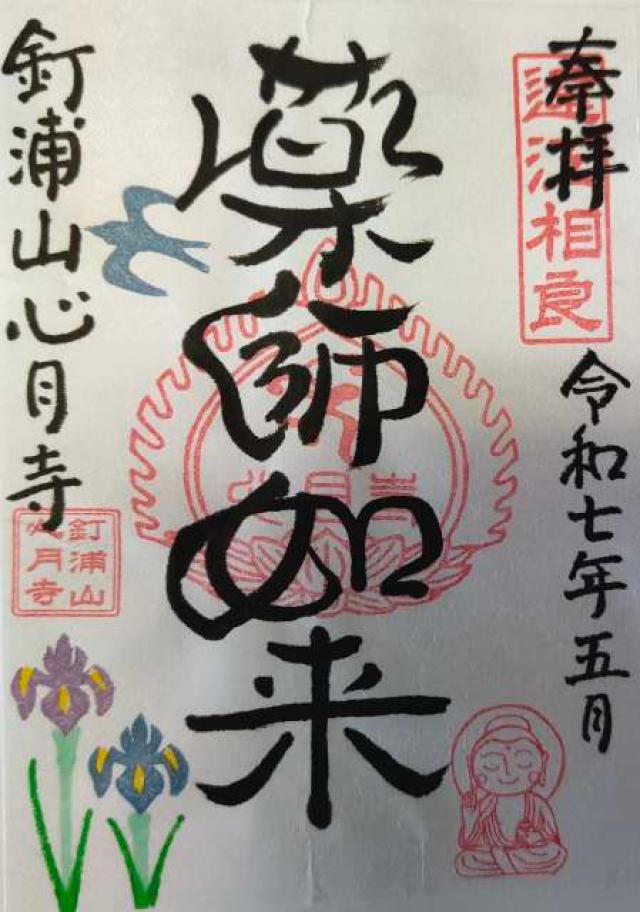 奉拝
遠江相良
令和七年五月
薬師如来
心月寺
釘浦山心月寺
釘浦山
心月寺